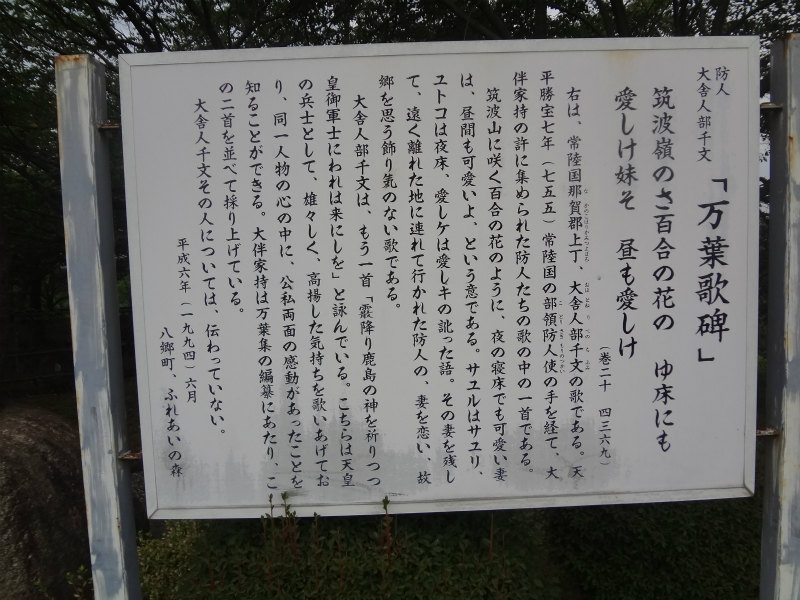 「万葉歌碑」
防人
大舎人部千文
筑波嶺のさ百合の花の ゆ床にも
愛しけ妹そ 昼も愛しけ
(巻二十 四三六九)
右は、常陸国那賀郡上丁、大舎人部千文の歌である。天
平勝宝七年(七五五)常陸国の部領防人使の手を経て、大
伴家持の許に集められた防人たちの歌の中の一首である。
筑波山に咲く百合の花のように、夜の寝床でも可愛い妻
は、昼間も可愛いよ、という意である。サユルはサユリ、
ユトコは夜床、愛しケは愛しキの訛った語。その妻を残し
て、遠く離れた地に連れて行かれた防人の、妻を恋い、故
郷を思う飾り気のない歌である。
大舎人部千文は、もう一首「霰降り鹿島の神を祈りつつ
皇御軍士にわれは来にしを」と詠んでいる。こちらは天皇
の兵士として、雄々しく、高揚した気持ちを歌いあげてお
り、同一人物の心の中に、公私両面の感動があったことを
知ることができる。大伴家持は万葉集の編纂にあたり、こ
の二首を並べて採り上げている。
大舎人千文その人については、伝わっていない。
平成六年(一九九四)六月
八郷町、ふれあいの森